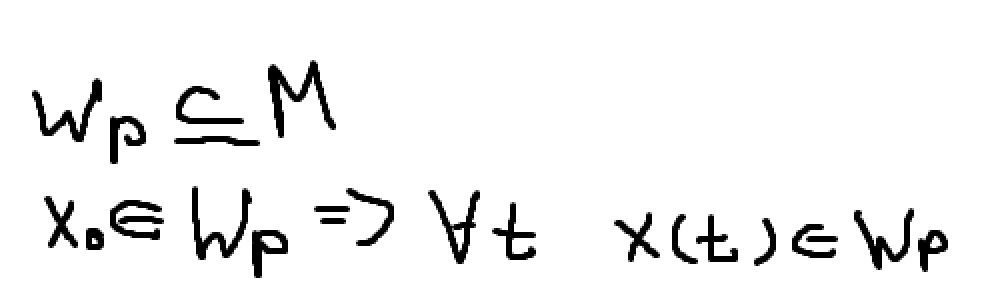 W_p ⊆ M
x_0 ∈ W_p => ∀t x(t) ∈ W_p